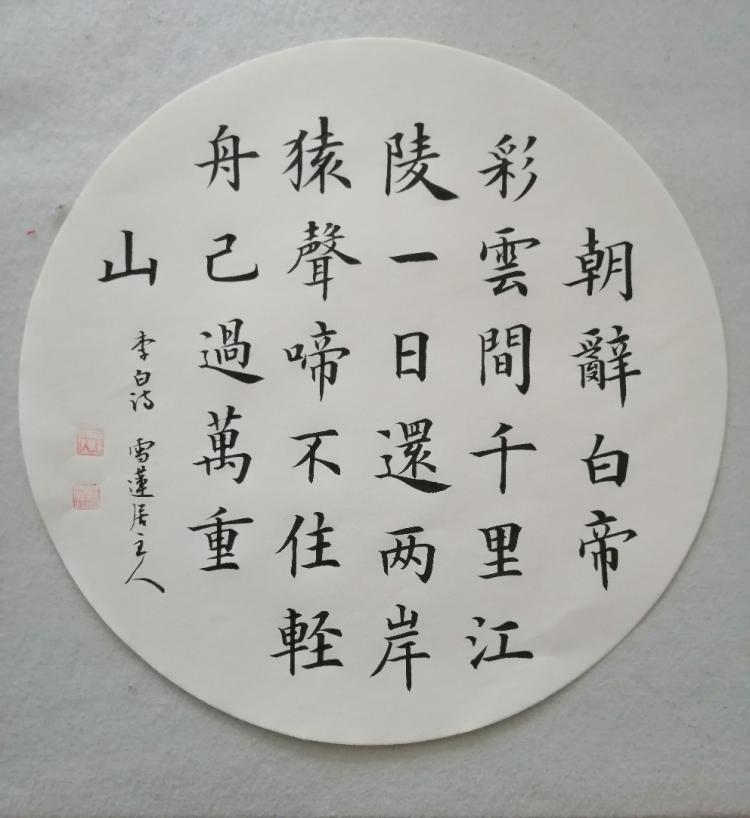 朝辭白帝
彩雲間千里江
陵一日還两岸
猿聲啼不住軽
舟己過萬重
山
李白詩 雪蓮居主人